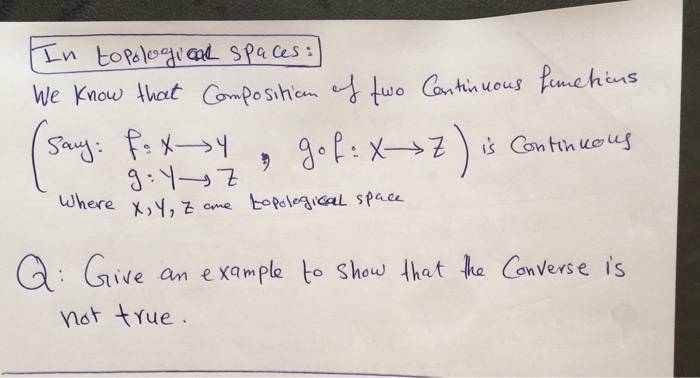 In topological spaces:
We Know that Composition of two Continuous functions
(Say: f: X→Y , g∘f: X→Z) is Continuous
g: Y→Z
Where X, Y, Z are topological space
Q: Give an example to show that the Converse is
not true.